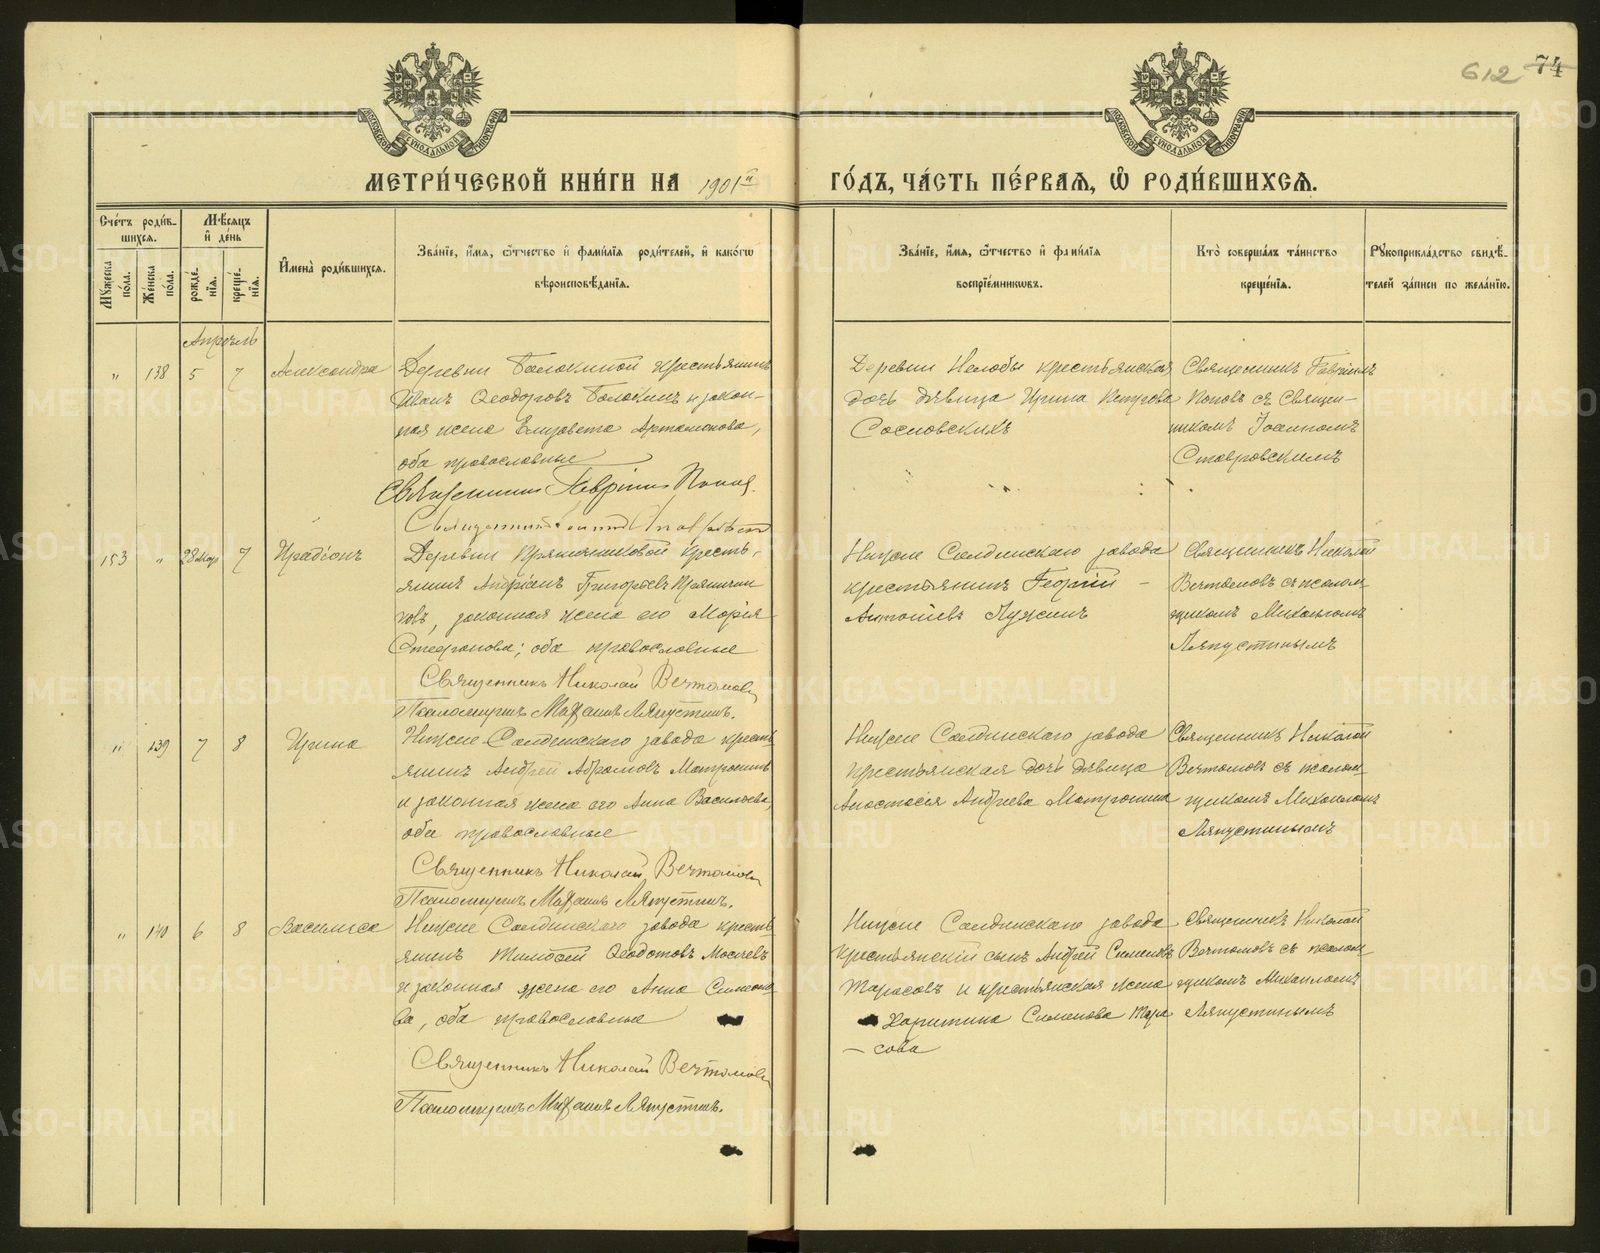 612 74
МОСКОВСКОЙ СѴНОДАЛЬНОЙ ТИПОГРАФІИ
МОСКОВСКОЙ СѴНОДАЛЬНОЙ ТИПОГРАФІИ
МЕТРИ́ЧЕСКОЙ КНИ́ГИ НА 1901й ГО́ДЪ, ЧА́СТЬ ПЕ́РВАѦ, Ѽ РОДИ́ВШИХСѦ.
Сче́тъ роди́в-
шихсѧ.
Мꙋжеска по́ла.
Же́нска по́ла.
Мѣсѧцъ
и҆ де́нь
рожде́-
нїѧ.
креще́-
нїѧ.
И҆мена̀ роди́вшихсѧ.
Зва́нїе, и҆́мѧ, ѻ҆́тчество и҆ фами́лїѧ роди́телей, и҆ како́гѡ
вѣроисповѣ́данїѧ.
Зва́нїе, и҆́мѧ, ѻ҆́тчество и҆ фами́лїѧ
воспрїе́мникѡвъ.
Кто̀ соверша́лъ та́инство
креще́нїѧ.
Рꙋкоприкла́дство свидѣ́-
телей за́писи по жела́нїю.
Апрѣль
" 138 5 7 Александра
Деревни Балакиной крестьянинъ
Иванъ Ѳеодоровъ Балакинъ и закон-
ная жена Елизавета Артамонова,
оба православные
Священникъ Гавріилъ Поповъ.
Деревни Нелобы крестьянская
дочь дѣвица Ирина Петрова
Сосновскихъ
Священникъ Гавріилъ
Поповъ съ Священ-
никомъ Іоанномъ
Ставровскимъ
Священникъ
153 " 28 мар 7 Иродіонъ
Деревни Пряничниковой кресть-
янинъ Андріанъ Григорьевъ Пряничн
ковъ, законная жена его Марія
Стефанова; оба православные
Священникъ Николай Вечтомовъ
Псаломщикъ Михаилъ Ляпустинъ.
Нижне Салдинскаго завода
крестьянинъ Георгій -
Антоніевъ Лужинъ
Священникъ Николай
Вечтомовъ съ псалом-
щикомъ Михаиломъ
Ляпустинымъ
" 139 7 8 Ирина
Нижне-Салдинскаго завода кресть
янинъ Андрей Абрамовъ Матронинъ
и законная жена его Анна Васильева,
оба православные
Священникъ Николай Вечтомовъ
Псаломщикъ Михаилъ Ляпустинъ.
Нижне Салдинскаго завода
крестьянская дочь дѣвица
Анастасія Андреева Матронина
Священникъ Николай
Вечтомовъ съ псалом-
щикомъ Михаиломъ
Ляпустинымъ
" 140 6 8 Василиса
Нижне Салдинскаго завода кресть
янинъ Тимофей Ѳеодотовъ Мосеевъ
и законная жена его Анна Симеоно-
ва, оба православные
Священникъ Николай Вечтомовъ
Псаломщикъ Михаилъ Ляпустинъ.
Нижне Салдинскаго завода
крестьянскій сынъ Андрей Симеоновъ
Тарасовъ и крестьянская жена
Харитина Симеонова Тара
- сова
Священникъ Николай
Вечтомовъ съ псалом-
щикомъ Михаиломъ
Ляпустинымъ
METRIKI.GASO-URAL.RU